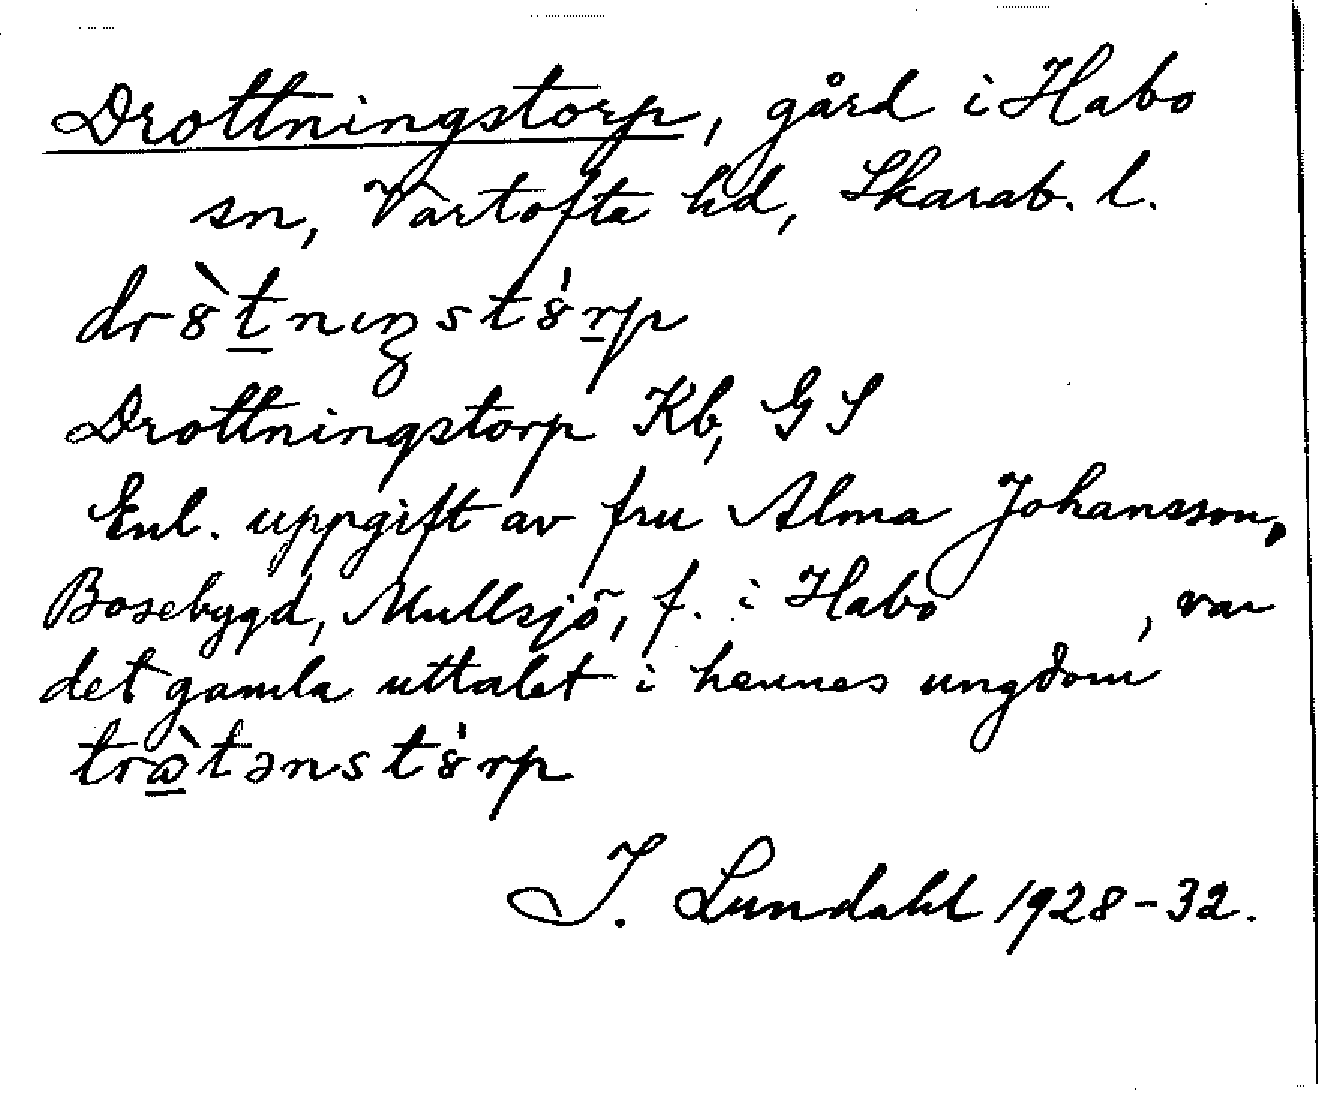 Drottningstorp, gård i Habo
sn, Vartofta hd, Skarab. l.
dr8̀t̲nıŋst8́r̲p
Drottningstorp Kb, GS
Enl. uppgift av fru Alma Johansson,
Bosebygd, Mullsjö, f. i Habo , var
det gamla uttalet i hennes ungdom
trà̲tənst8́rp
I. Lundahl 1928-32.